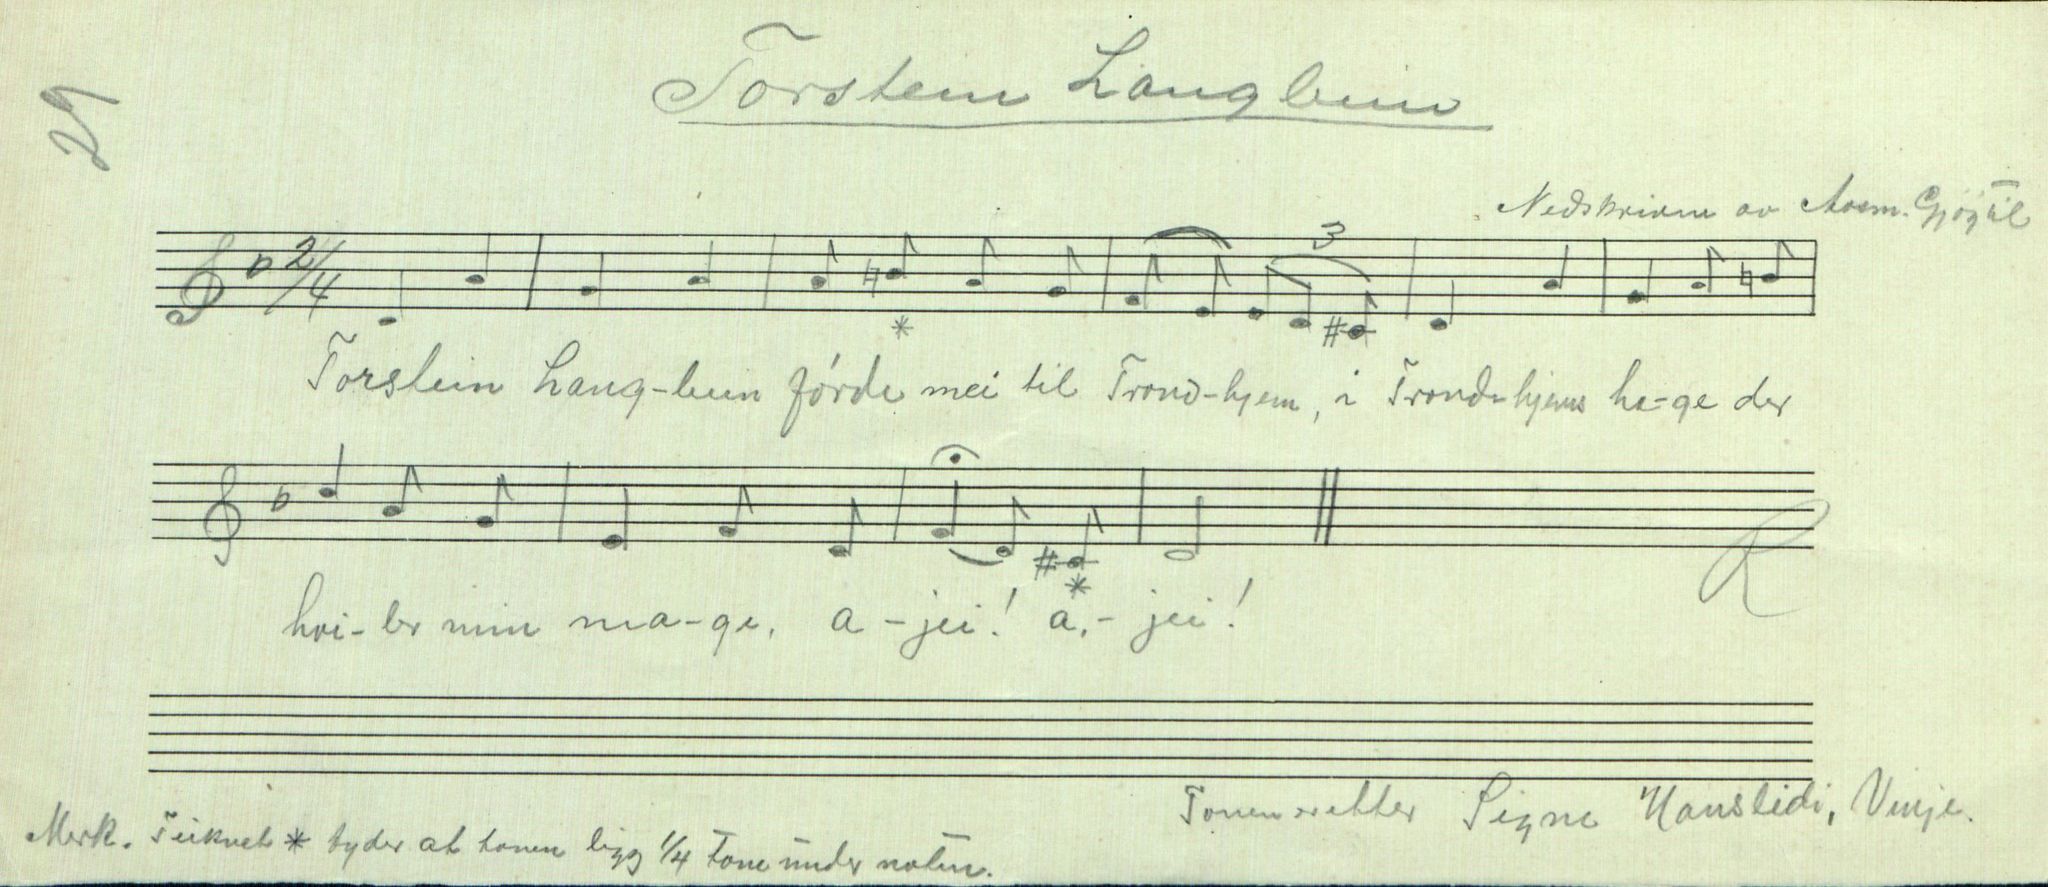 29
Torstein Langbein
Nedskrivne av Aasm. Gjøytil
2/4
3
Torstein Lang-bein förde mei til Trond-hjem, i Trond-hjems ha-ge der
hvi-ler min ma-ge, a-jei! a,- jei!
R
Tonen etter Signe Haustidi, Vinje.
Merk. Teiknet * tyder at tonen ligg 1/4 tone under noten.